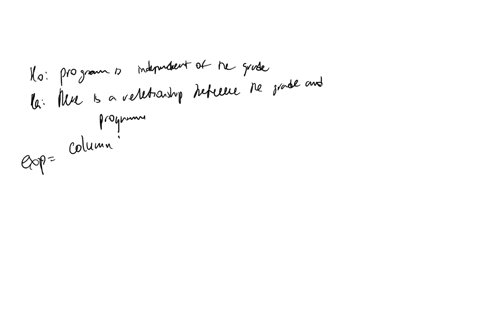 Ho: program is independent of the grade
Ha: there is a relationship between the grade and
programme
exp= column